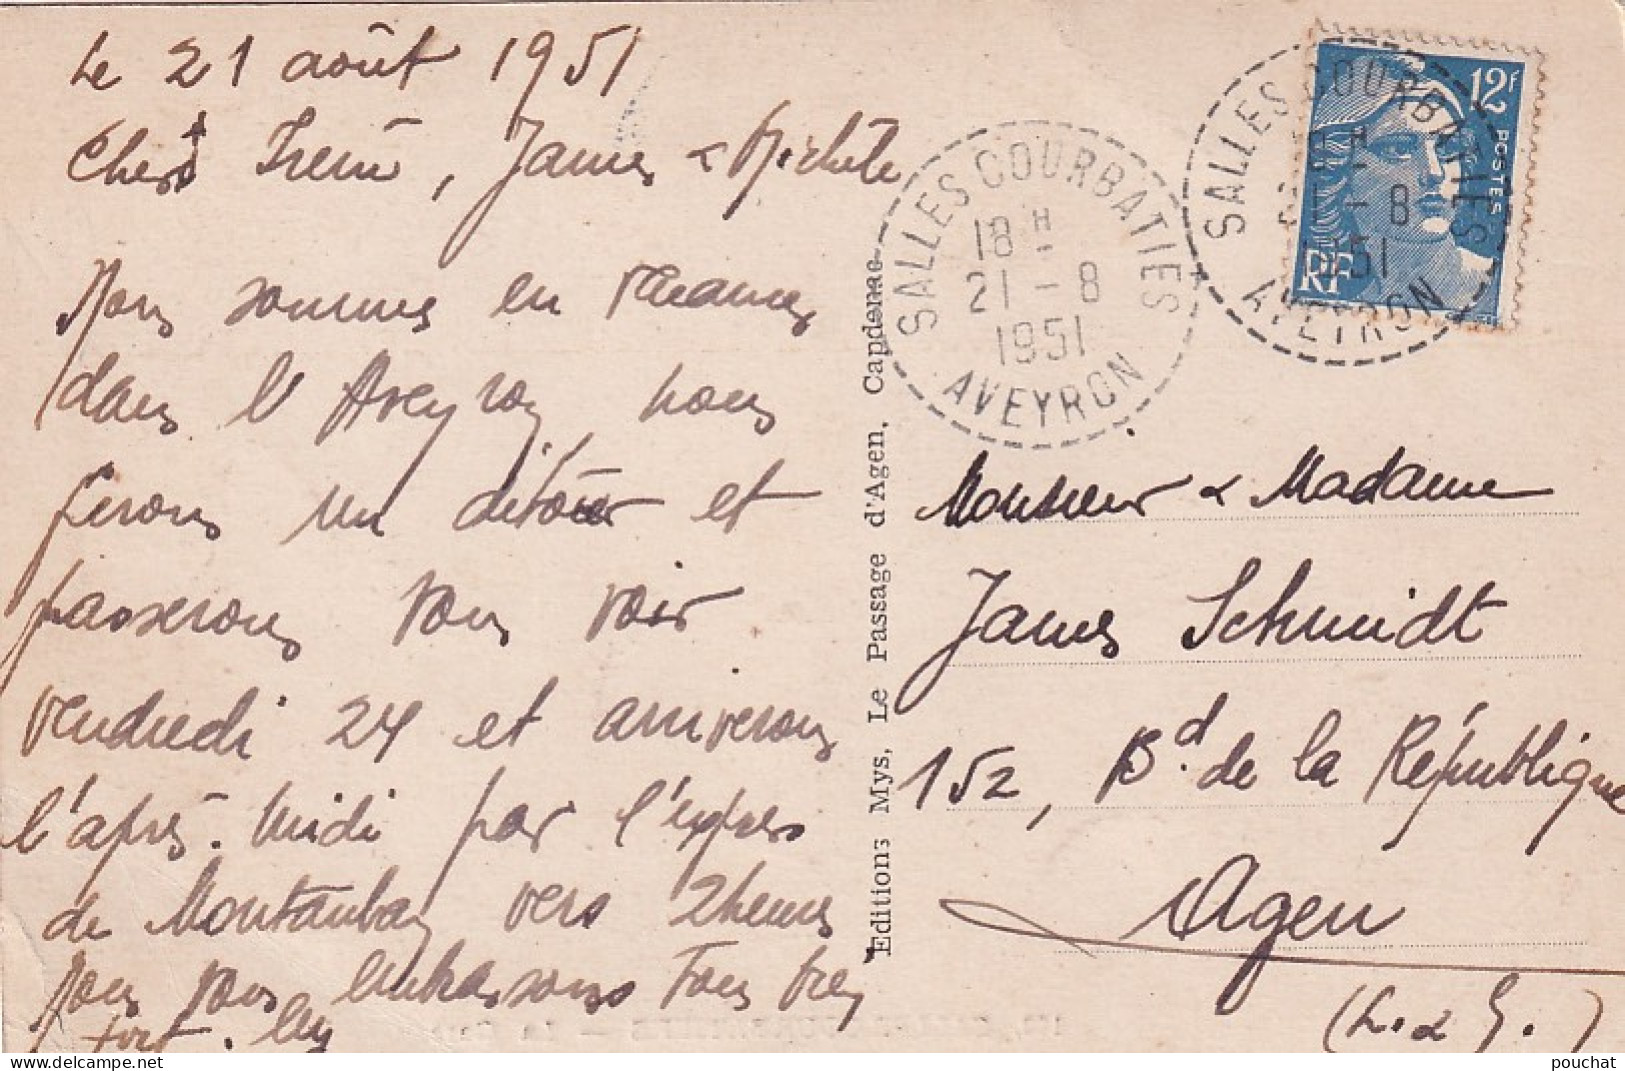 Le 21 août 1951
Chers Irène, James & Michèle
Nous sommes en vacances
dans l'Aveyron, nous
ferons un détour et
passerons vous voir
vendredi 24 et arriverons
l'après-midi par l'express
de Montauban vers 2heures
Nous vous embrassons tous très
fort.
Editions Mys, Le Passage d'Agen, Capdenac
SALLES COURBATIES
18 H
21 - 8
1951
AVEYRON
SALLES COURBATIES
21 - 8
1951
AVEYRON
12F
POSTES
RF
Monsieur & Madame
James Schmidt
152, Bd. de la République
Agen
(L. & G.)
pouchat